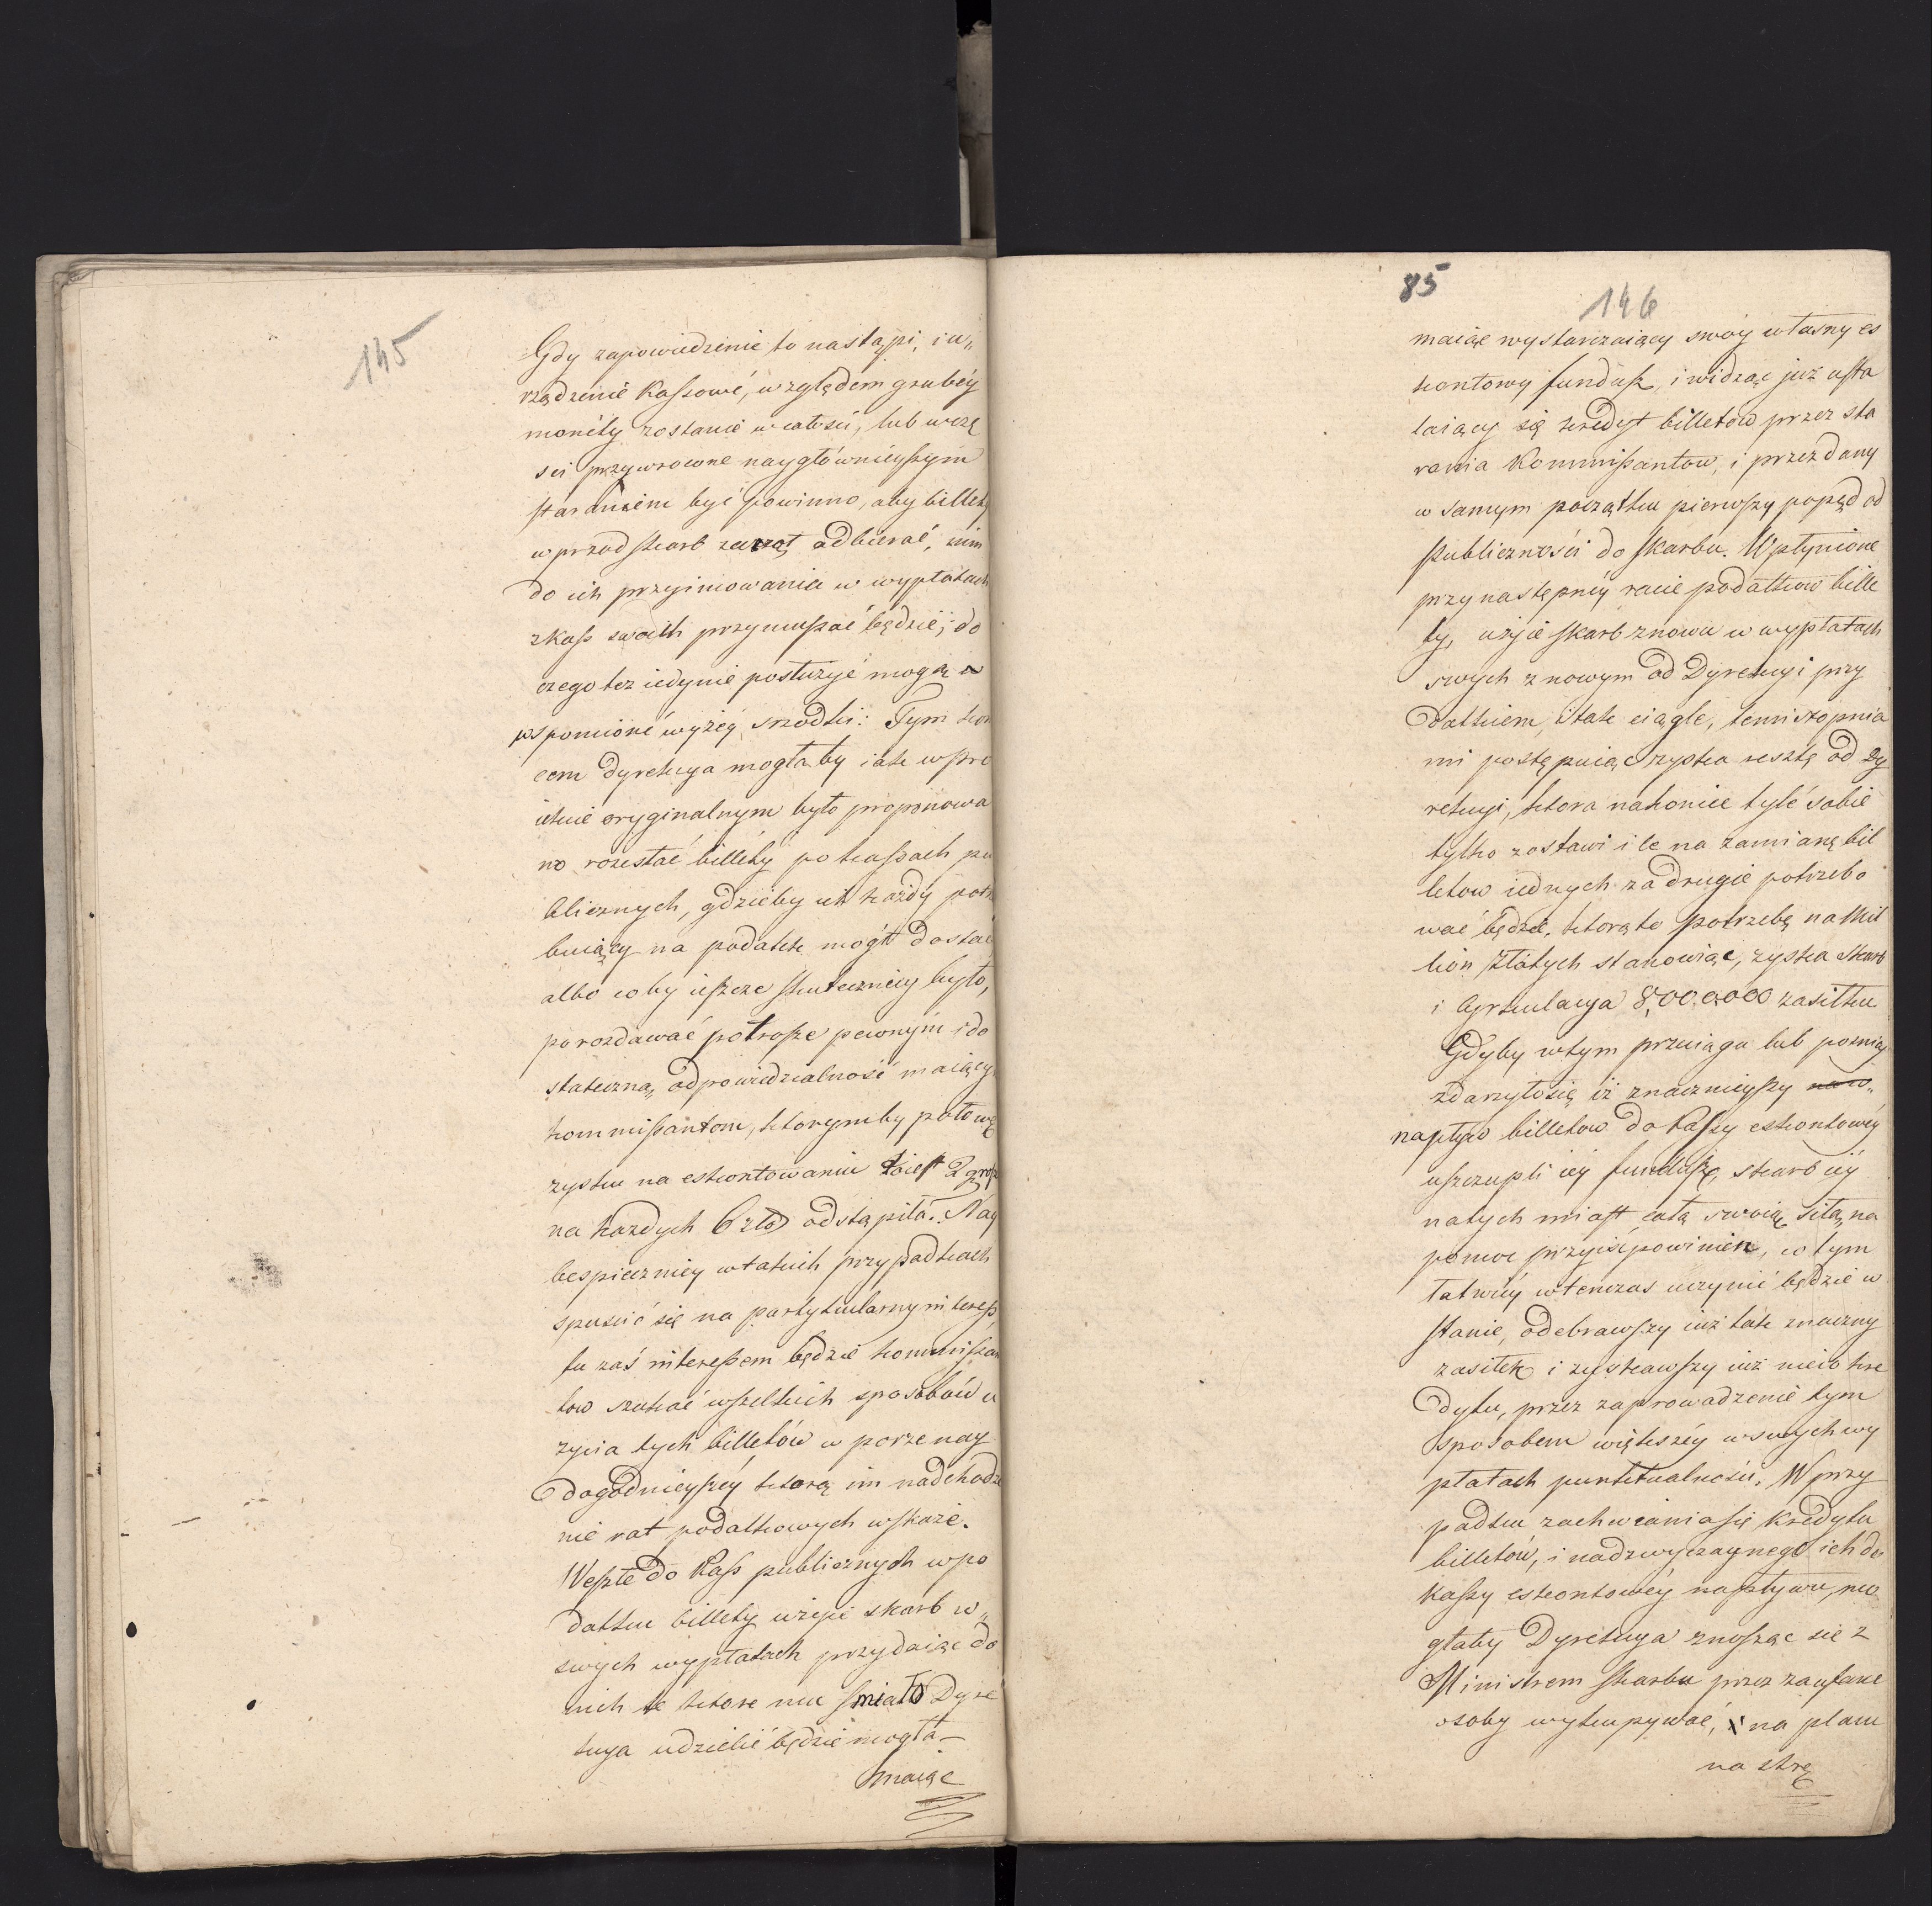 145
Gdy zapowiedzenie to nastąpi, i u„
rządzenie Kassowé, względem grubéy
monéty zostanie w całości, lub w czę
sci przywrocone naygłównieyszym
staraniem być powinno, aby billety
wprzod skarb zaczął odbierać, nim
do ich przyimowania w wypłatach
z Kass swoich przymuszać będzie, do
czego tez iedynie posłużyć mogą w
wspomioné wyżey srzodki: Tym kon
cem Dyrekcya mogłaby iak w pro
iekcie oryginalnym było proponowa
no rozesłać billéty po kassach pu
blicznych, gdzieby ich każdy potrze
buiący na podatek mógł dostać
albo coby ieszcze skuteczniey było,
porozdawać potrosze pewnym i do
stateczną odpowiedzialność maiącym
kommissantom, ktorymby połowę
zysku na eskontowaniu to iest 2 grosze
na każdych 6 złt odstąpiła. Nay
bespieczniey w takich przypadkach
spuscić się na partykularny interess,
tu zaś interessem będzie kommissan
tow szukać wszelkich sposobów u
zycia tych billetów w porze nay
dogodnieyszéy ktorą im nadchodze
nie rat podatkowych wskaże.
Weszłe do Kass publicznych w po
datku billety użyie skarb w„
swych wypłatach przydaiąc do
nich te ktore mu śmiało Dyre
kcya udzielić będzie mogła —
maiąc
85
146
maiąc wystarczaiący swóy własny es
kontowy fundusz, i widząc już usta
laiący się kredyt billetow przez sta
rania Kommissantow, i przez dany
w samym początku pierwszy popęd od
Publiczności do skarbu. Wpłynione
przy następnéy racie podatkow bille
ty, użyie skarb znowu w wypłatach
swych z nowym od Dyrekcyi przy
datkiem, i tak ciągle, temi stopnia
mi postępuiąc zyska resztę od Dy
rekcyi, ktora nakoniec tyle sobie
tylko zostawi ile na zamianę bil
letow iednych za drugie potrzebo
wać będzie, ktorą to potrzebę na Mil
lion złotych stanowiąc, zyska skarb
i Cyrkulacya 8,000,000 zasiłku
Gdyby w tym przeciągu lub poźniey
zdarzyło się iż znacznieyszy naw„
napływ billetow do Kassy eskontowéy
uszczupli iéy fundusze, skarb iéy
natychmiast całą swoią siłą na
pomoc przyiść powinien, co tym
łatwiéy wtenczas uczynić będzie w
stanie, odebrawszy iuż tak znaczny
zasiłek i zyskawszy iuż nieco kre
dytu, przez zaprowadzenie tym
sposobem większéy w swych wy
płatach punktualności. W przy
padku zachwiania się kredytu
billetów, i nadzwyczaynego ich do
Kassy eskontowéy napływu, mo
głaby Dyrekcya znosząc się z
Ministrem Skarbu przez zaufane
osoby wykupywać, i na placu
na skrę